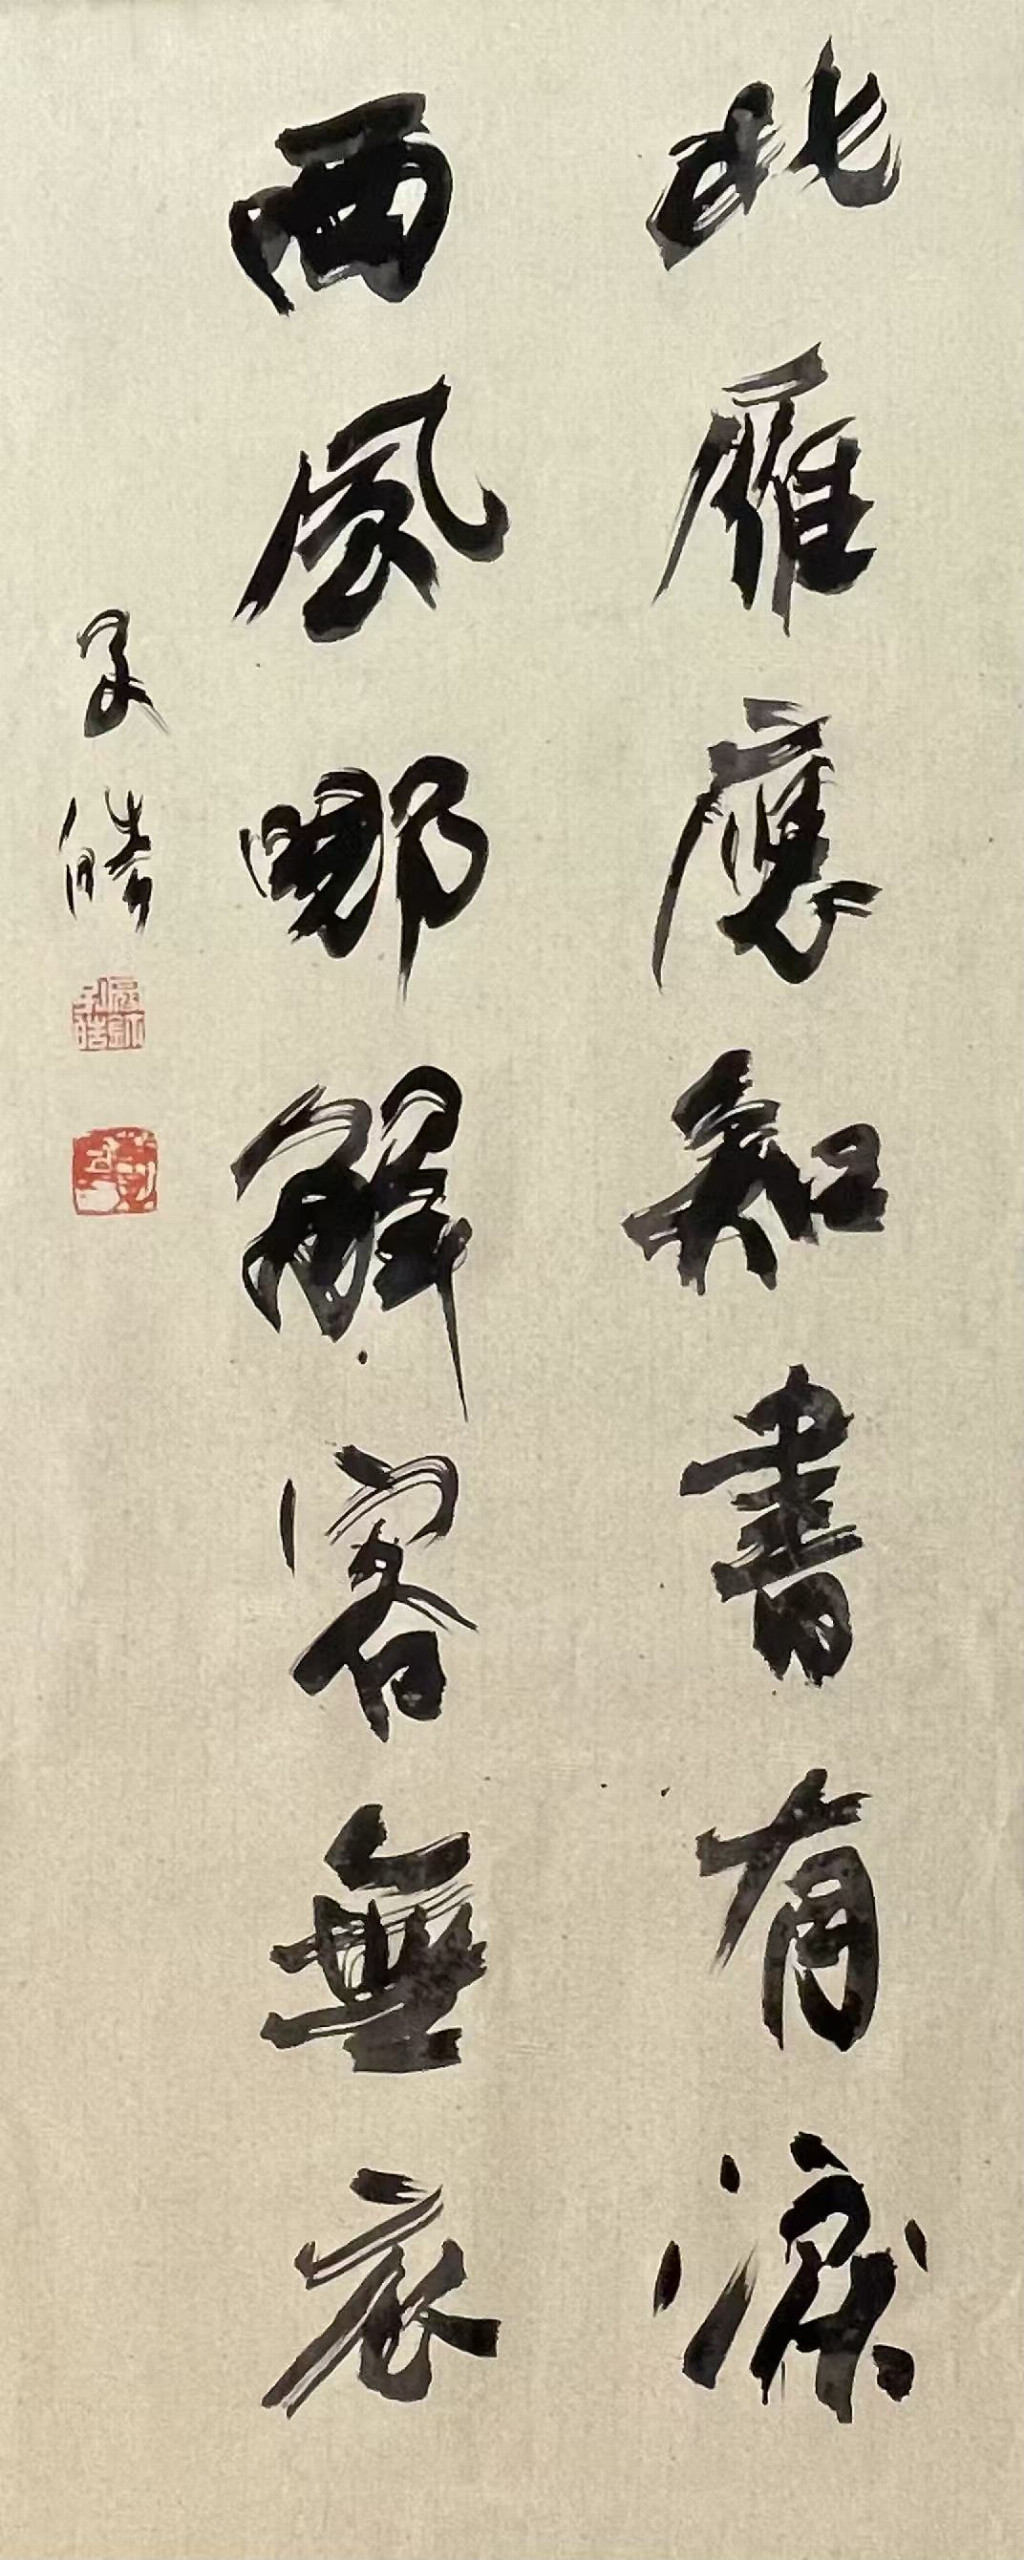 北雁應知書有淚
西風哪解客無衣
子皓